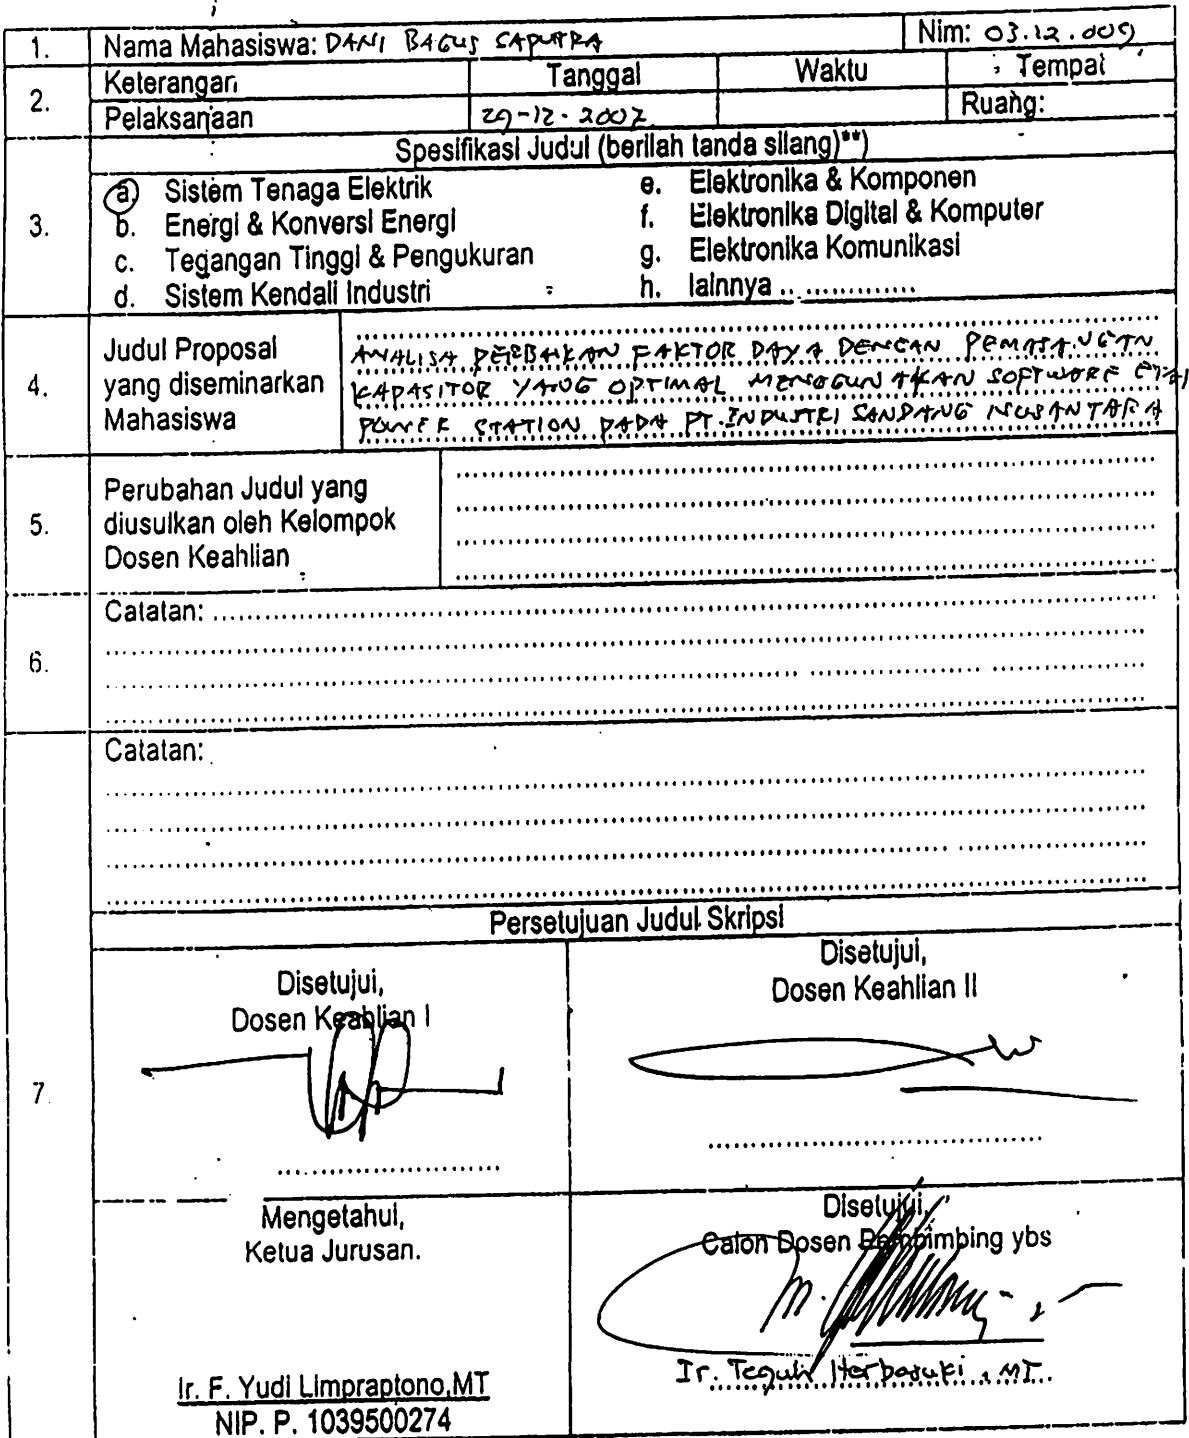 1. Nama Mahasiswa: DANI BAGUS SAPUTRA Nim: 03.12.009
2. Keterangan Tanggal Waktu Tempat
Pelaksanaan 29-12-2007 Ruang:
Spesifikasi Judul (berilah tanda silang)**)
3.
a. Sistem Tenaga Elektrik
b. Energi & Konversi Energi
c. Tegangan Tinggi & Pengukuran
d. Sistem Kendali Industri
e. Elektronika & Komponen
f. Elektronika Digital & Komputer
g. Elektronika Komunikasi
h. lainnya ................
4.
Judul Proposal
yang diseminarkan
Mahasiswa
ANALISA PERBAIKAN FAKTOR DAYA DENGAN PEMASANGAN
KAPASITOR YANG OPTIMAL MENGGUNAKAN SOFTWARE ETAP
POWER STATION PADA PT. INDUSTRI SANDANG NUSANTARA
5.
Perubahan Judul yang
diusulkan oleh Kelompok
Dosen Keahlian
6.
Catatan:
Catatan:
Persetujuan Judul Skripsi
7.
Disetujui,
Dosen Keahlian I
Disetujui,
Dosen Keahlian II
Mengetahui,
Ketua Jurusan.
Ir. F. Yudi Limpraptono,MT
NIP. P. 1039500274
Disetujui,
Calon Dosen Pembimbing ybs
Ir. Teguh Herbasuki, MT